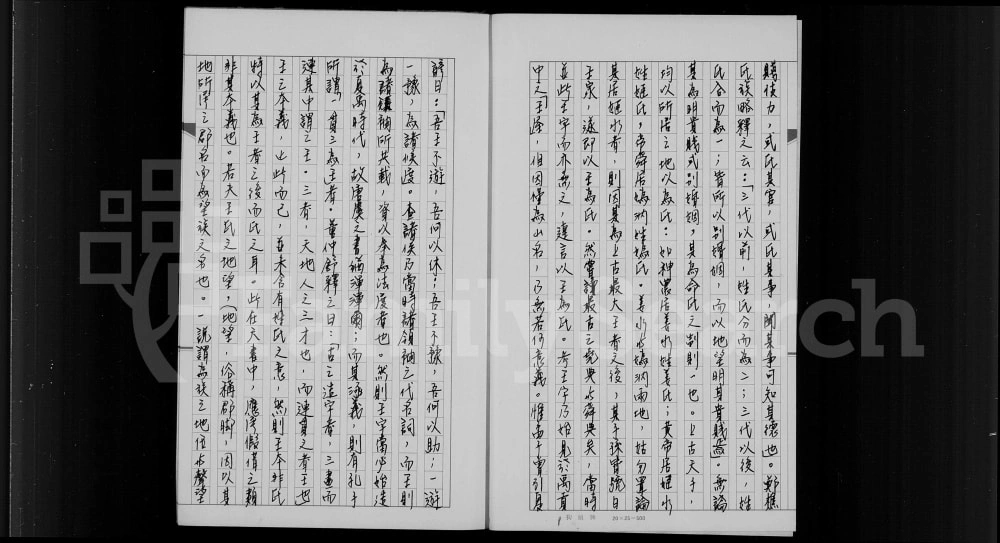 賜使力,或氏其官,或氏其事,聞其事可知其德也。鄭樵
氏族略釋之云:「三代以前,姓氏分而為二;三代以後,姓
氏合而為一;皆所以別婚姻,而以地望明其貴賤。無論
其為明貴賤或別婚姻,其為命氏之制則一也。上古天子,
均以所居之地以為氏:如神農居姜水姓姜氏;黃帝居姬水
姓姬氏,帝舜居媯汭姓媯氏。姜水媯汭兩地,姑勿置論
其居姬水者,則因其為上古最大王者之後,其子孫實號曰
王家,遂即以王為氏。然實據最古之堯典舜典矣,當時
並此王字而亦無之,遑言以王為氏。考王字乃始見於禹貢
中之「王逢,但因僅為山名,乃無若何意義。惟孟子曾引夏
諺曰:「吾王不遊,吾何以休;吾王不豫,吾何以助;一遊
一豫,為諸侯度。查諸侯乃當時諸領袖之代名詞,而王則
為諸領袖所共戴,資以奉為法度者也。然則王字當必始造
於夏禹時代,故虞夏之書猶渾渾爾;而其涵義,則有孔子
所謂「一貫三為王者。董仲舒釋之曰:「古之造字者,三畫而
連其中謂之王。三者,天地人之三才也,而連貫之者王也
王之本義,止此而已,並未含有姓氏之意,然則王本非氏
特以其為王者之後而氏之耳。此在天書中,應浮假借之類
非其本義也。若夫王氏之地望,地望,俗稱郡腳,因以其
地所屬之郡名而為望族之名也。一說謂為該之地位與聲望
20×25=500
FamilySearch